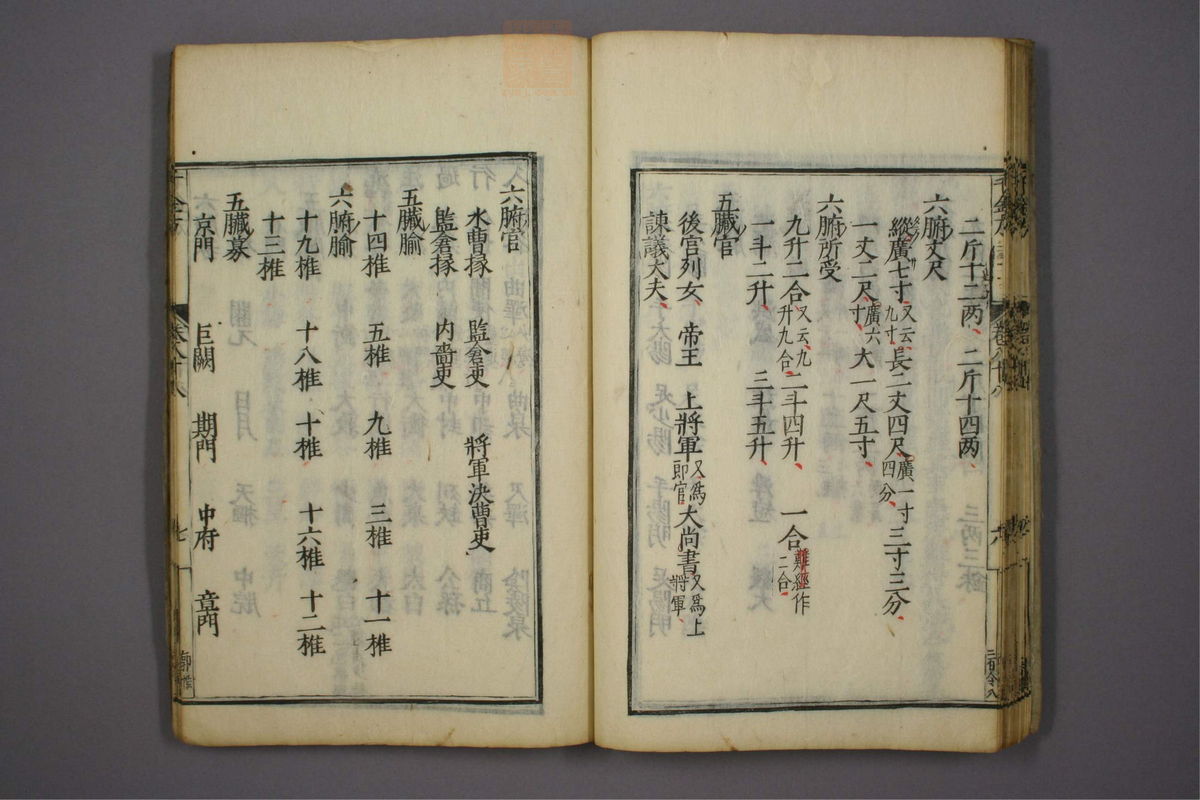 二斤十二两、二斤十四两、
六腑丈尺
縱廣七寸又云九寸、長二丈四尺、廣一寸四分、三寸三分、
一丈二尺、廣六寸、大一尺五寸、
六腑所受
九升二合、又云九升九合、二斗四升、一合難經作二合、
一斗二升、三斗五升、
五臟官
後宮列女、帝王 上將軍又爲即官大尚書又爲上將軍、
諫議大夫、
六腑官
水曹掾 監倉吏 將軍決曹吏
監倉掾 内嗇吏
五臟腧
十四椎 五椎 九椎 三椎 十一椎
六腑腧
十九椎 十八椎 十椎 十六椎 十二椎
十三椎
五臟募
京門 巨闕 期門 中府 章門